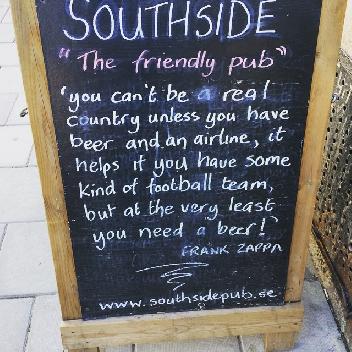 SOUTHSIDE
"The friendly pub"
'you can't be a real
country unless you have
beer and an airline, it
helps if you have some
kind of football team,
but at the very least
you need a beer!'
FRANK ZAPPA
www.southsidepub.se